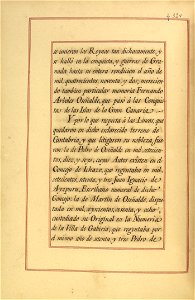 se unieron los Reynos tan dichosamente, y
se halló en la conquista, y guerras de Gra-
nada, hasta su entera rendicion el año de
mil quatrocientos, noventa, y dos; merecien-
do tambien particular memoria Fernando
Arbolas Ozinalde, que pasó á las Conquis-
tas de las Islas de la Gran Canaria.
Y por lo que respeta á las Lineas, que
quedaron en dicho esclarecido terreno de
Cantabria, y que litigaron su nobleza, fue-
ron: la de Pedro de Ozinalde, mil, setecien-
tos, diez, y seys, cuyos Autos existen en el
Concejo de Ichaso, que registraba en mil,
setecientos, setenta, y tres Juan Ignacio de
Ayzpuru, Escribano numeral de dicho
Concejo: la de Martin de Ozinalde dispu-
tada en mil, setecientos, treinta, y ocho,
custodiado su Original en la Numeria
de la Villa de Galicia, que registraba por
el mismo año de setenta, y tres Pedro de